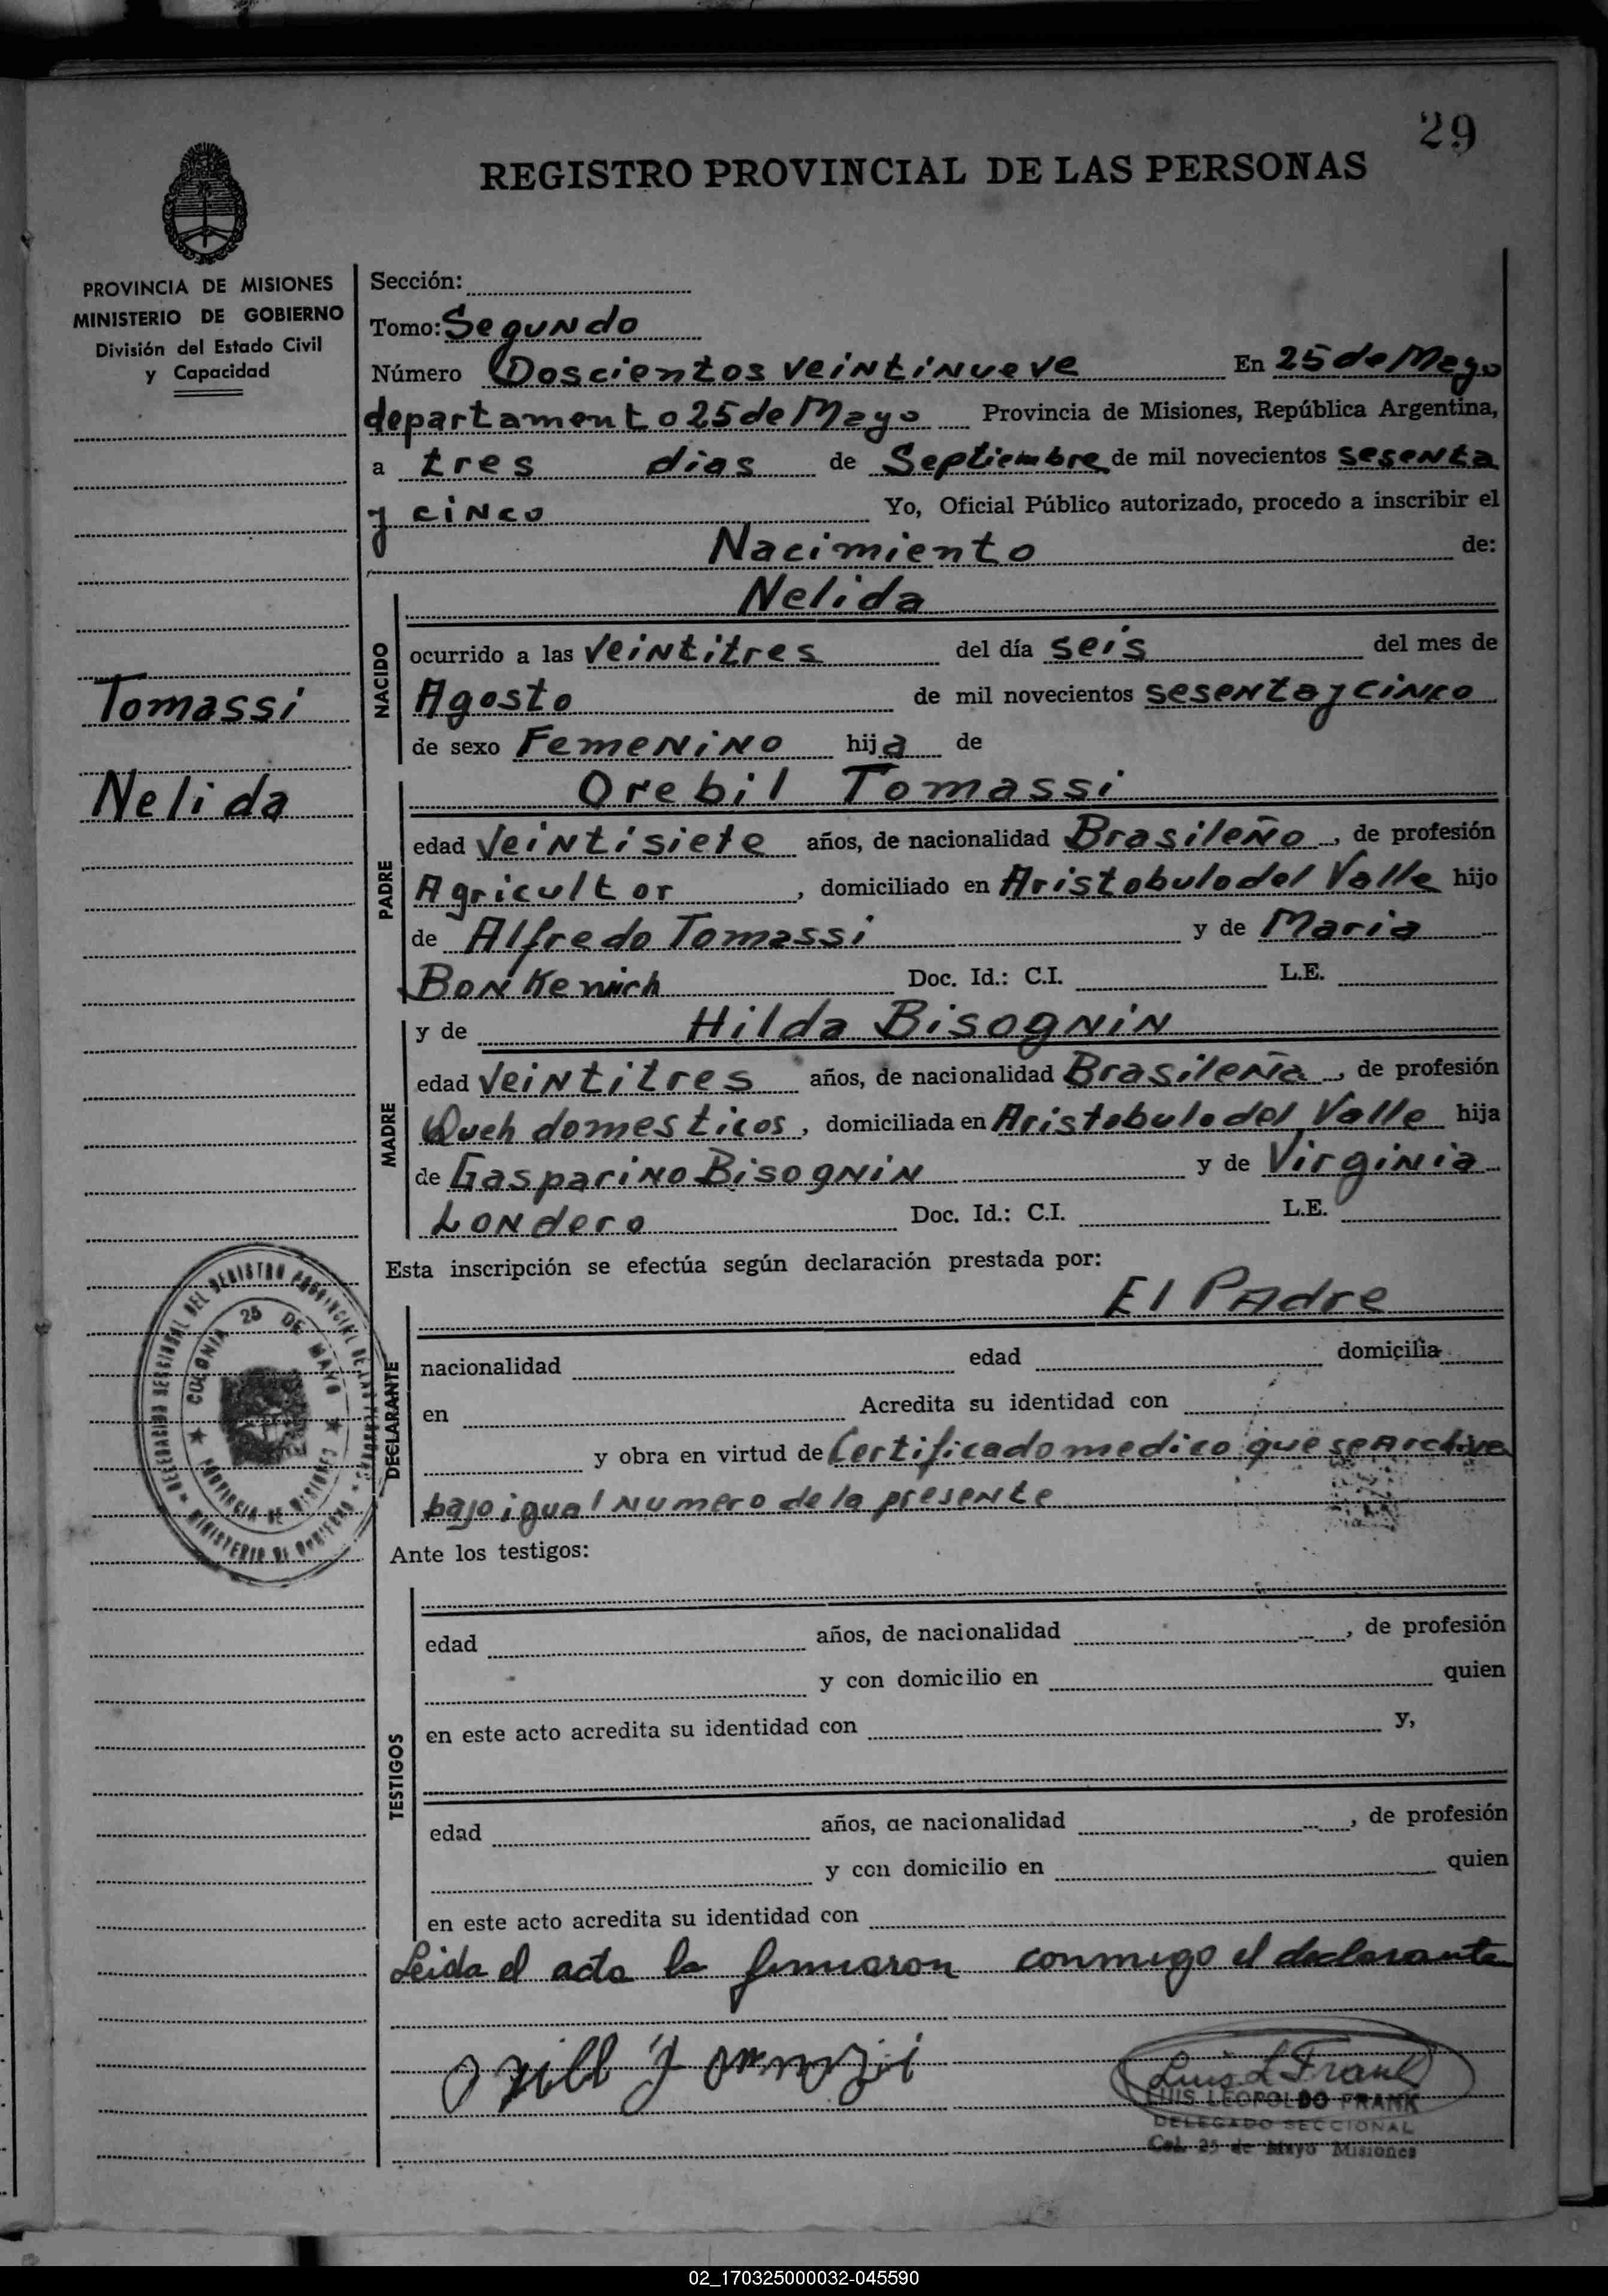 29
REGISTRO PROVINCIAL DE LAS PERSONAS
PROVINCIA DE MISIONES
MINISTERIO DE GOBIERNO
División del Estado Civil
y Capacidad
Sección:
Tomo: Segundo
Número Doscientos veintinueve En 25 de Mayo
departamento 25 de Mayo Provincia de Misiones, República Argentina,
a tres dias de Septiembre de mil novecientos sesenta
y cinco Yo, Oficial Público autorizado, procedo a inscribir el
Nacimiento de:
Nelida
NACIDO
ocurrido a las veintitres del día seis del mes de
Agosto de mil novecientos sesenta y cinco
de sexo Femenino hija de
Tomassi
Nelida
Orebil Tomassi
PADRE
edad veintisiete años, de nacionalidad Brasileño, de profesión
Agricultor, domiciliado en Aristobulo del Valle hijo
de Alfredo Tomassi y de Maria
Doc. Id.: C.I. L.E.
y de Hilda Bisognin
MADRE
edad veintitres años, de nacionalidad Brasileña, de profesión
Queh domesticos, domiciliada en Aristobulo del Valle hija
de Gasparino Bisognin y de Virginia
Londero Doc. Id.: C.I. L.E.
Esta inscripción se efectúa según declaración prestada por:
El Padre
DECLARANTE
nacionalidad edad domicilia
en Acredita su identidad con
y obra en virtud de Certificado medico que se Archiva
bajo igual numero de la presente
COLONIA 25 DE MAYO
PROVINCIA DE MISIONES
MINISTERIO DE GOBIERNO
Ante los testigos:
TESTIGOS
edad años, de nacionalidad , de profesión
y con domicilio en quien
en este acto acredita su identidad con y,
edad años, de nacionalidad , de profesión
y con domicilio en quien
en este acto acredita su identidad con
Leida el acta la firmaron conmigo el declarante
Luis L Frank
LUIS LEOPOLDO FRANK
DELEGADO SECCIONAL
Col. 25 de Mayo Misiones
02_170325000032-045590